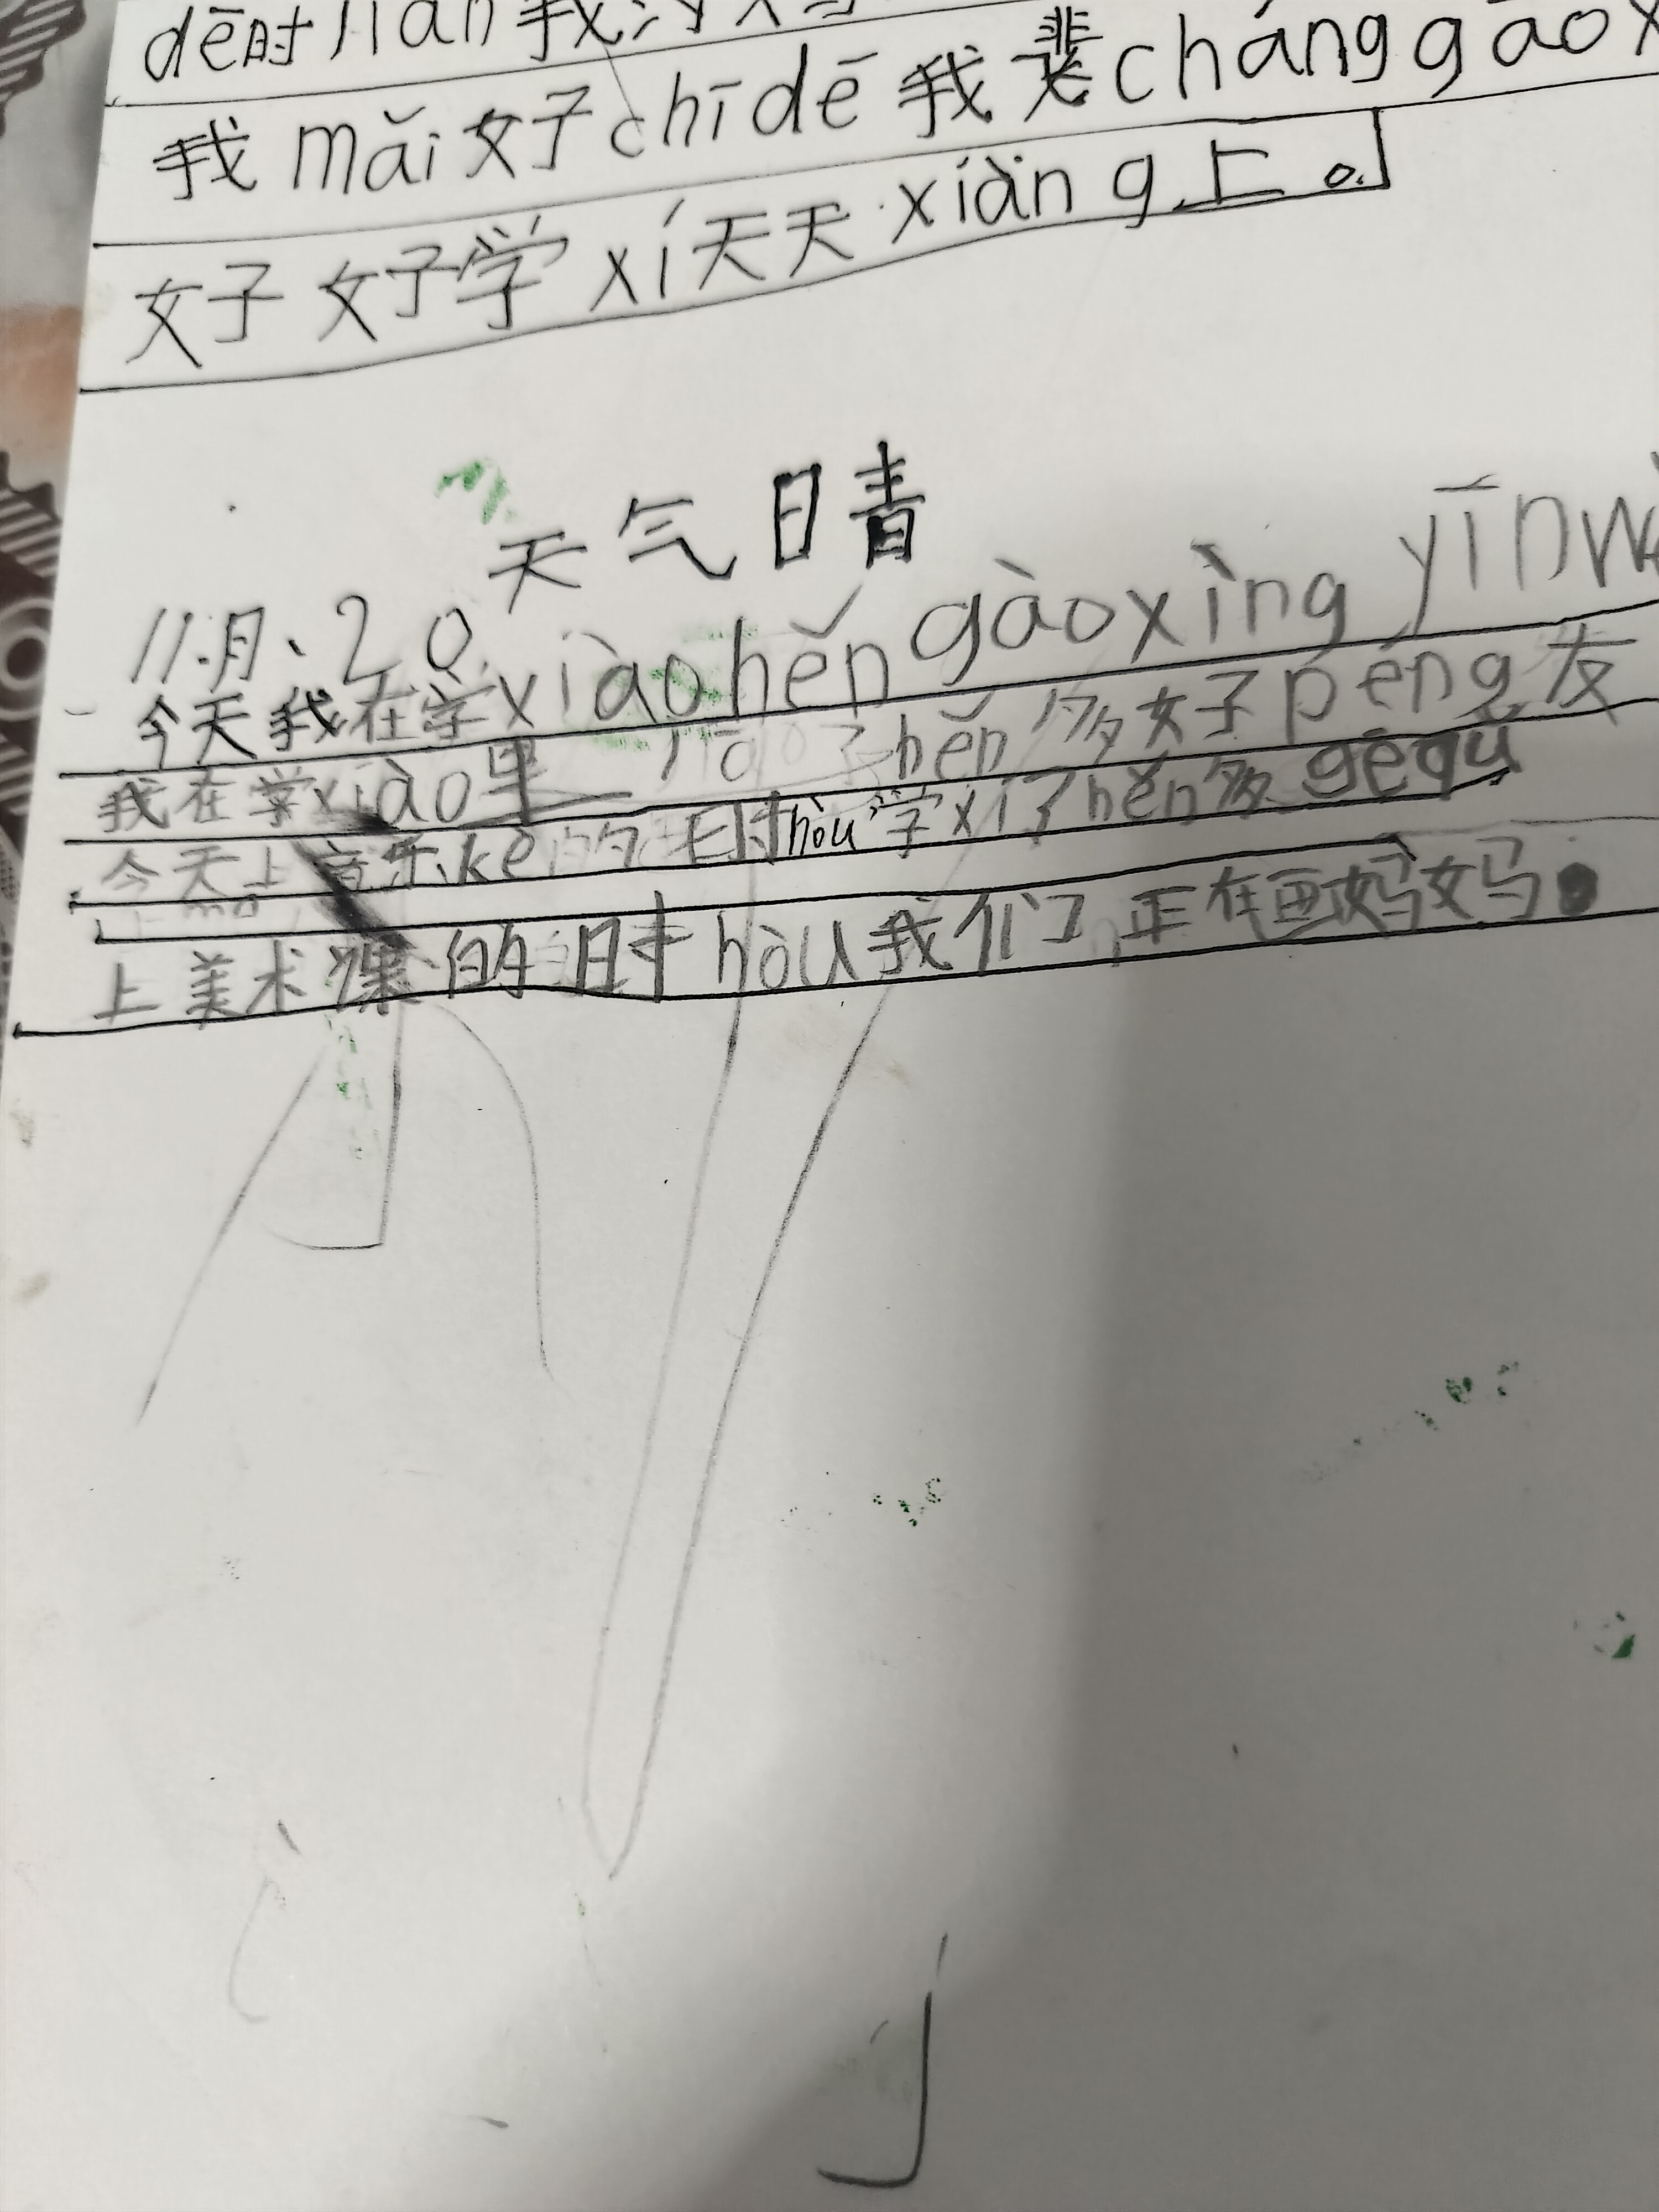 dē时jiān我
我mǎi好chīdē我裴chánggāo
好好学xí天天xiàng上。
天气晴
11.月、20.
今天我在学xiàohěngàoxìng yīnw
我在学xiào里 了hěn多好péng友
今天上音乐kè的时hòu学xí了hěn多gēqǔ
上美术课的时hòu我们正在画妈妈